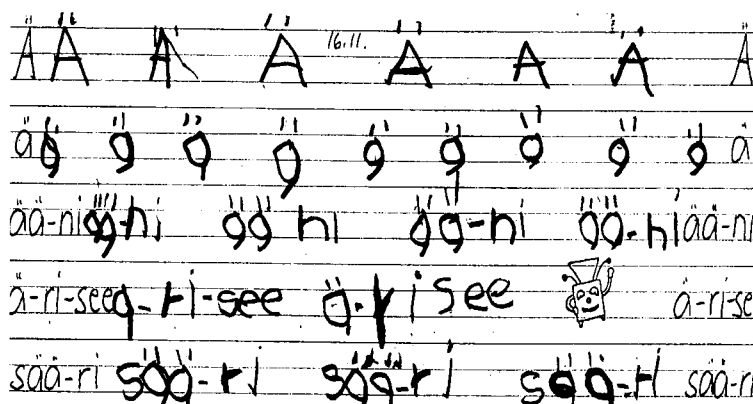 Ä Ä Ä Ä 16.11. Ä A Ä Ä
ä ä ä ä ä ä ä ä ä ä ä
ää-ni ää-ni ää ni ää-ni ää-ni ää-ni
ä-ri-see a-ri-see ä-ri see ä-ri-se
sää-ri sää-ri sää-ri sää-ri sää-ri